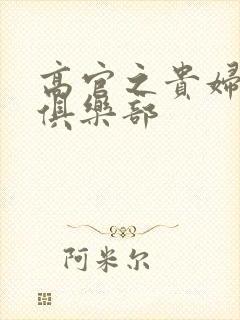 高官之貴婦
俱樂部
阿米尔